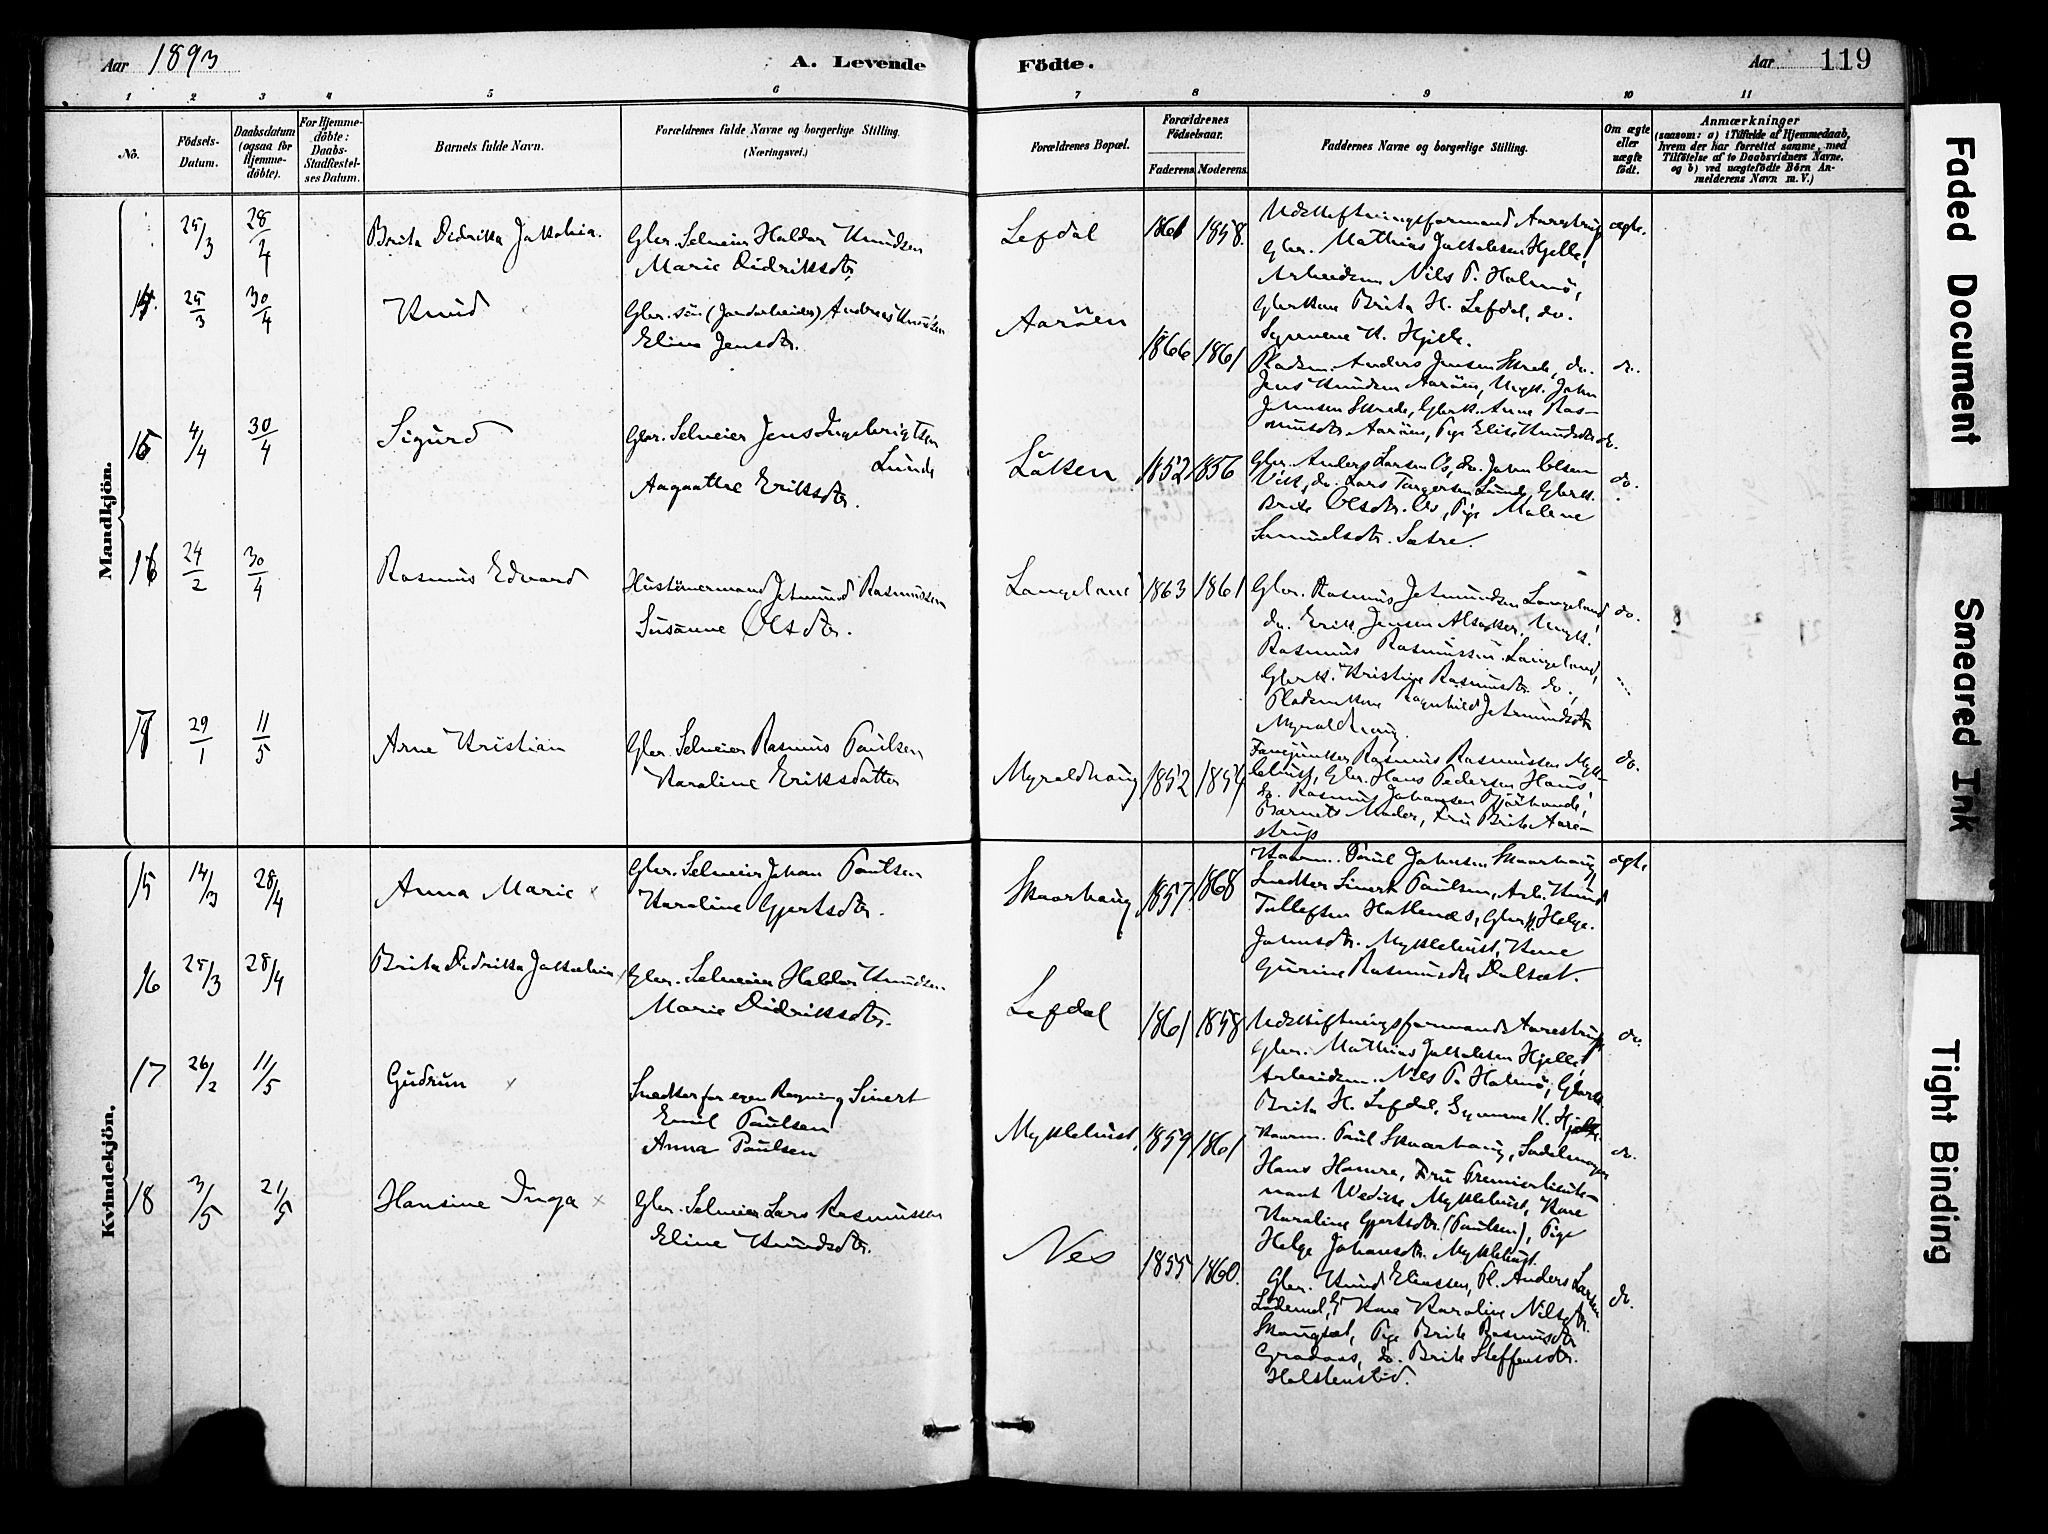 Aar 1893
A. Levende
Födte.
Aar
119
1 2 3 4 5 6 7 8 9 10 11
No.
Födsels-
Datum.
Daabsdatum
(ogsaa for
Hjemme-
döbte).
For Hjemme-
döbte:
Daabs-
Stadfæstel-
ses Datum.
Barnets fulde Navn.
Forældrenes fulde Navne og borgerlige Stilling.
(Næringsvei.)
Forældrenes Bopæl.
Forældrenes
Födselsaar.
Faderens Moderens
Faddernes Navne og borgerlige Stilling.
Om ægte
eller
uægte
födt.
Anmærkninger
(saasom: a) i Tilfælde af Hjemmedaab,
hvem der har forrettet samme, med
Tilföielse af to Daabsvidners Navne,
og b) ved uægtefödte Börn An-
melderens Navn m. V.)
Mandkjön.
25/3 28/4 Brita Didrikka Jakobia.
Gbr. Selveier Haldor Knudsen
Marie Didriksdtr.
Lefdal 1861 1858.
Udskiftningsformand Aarestrup
Gbr. Mathias Jakobsen Hjelle,
Arbeidsm. Nils P. Holmö,
Gbrkone Brita H. Lefdal, do.
K. Hjelle.
ægte.
14. 25/3 30/4 Knud
Gbr. sön (Jordarbeider) Andreas Knudsen
Eline Jensdtr.
Aaröen 1866 1861
Pladsm. Anders Jensen Skrede, do.
Jens Knudsen Aaröen, Ungk. John
Johnsen Skrede, Gbrk. Anne Ras-
musdtr. Aaröen, Pige Elise Knudsdtr. do.
do.
15 4/4 30/4 Sigurd
Gbr. Selveier Jens Ingebrigtsen
Lunde
Aagaathe Eriksdtr.
Löken 1852 1856
Gbr. Anders Larsen Os, do. John Olsen
Vik, do. Lars Torgersen Lunde, Gbrk.
Brite Olsdtr. Os, Pige Malene
Samuelsdtr. Sætre.
do.
16 24/2 30/4 Rasmus Edvard
Husтömermand Jetmund Rasmussen
Susanne Olsdtr.
Langeland 1863 1861
Gbr. Rasmus Jetmundsen Langeland,
do. Erik Jensen Alsaker, Ungk.
Rasmus Rasmussen Langeland,
Gbrk. Kristine Rasmusdtr. do.,
Pladsmkone Ragnhild Jetmundsdtr.
Myroldhaug.
do.
17 29/1 11/5 Arne Kristian
Gbr. Selveier Rasmus Paulsen
Karoline Eriksdatter
Myroldhaug 1852 1854
Fanejunker Rasmus Rasmussen Mykle-
bust, Gbr. Hans Pedersen Haus,
do. Rasmus Johansen,
Barnets Moder, Fru Brite Aare-
strup
do.
Kvindekjön.
15 14/3 28/4 Anna Marie x
Gbr. Selveier Johan Paulsen
Karoline Gjertsdtr.
Skaarhaug 1857 1868
Kaarm. Paul Johnsen Skaarhaug,
Snedker Sivert Paulsen, Arb. Knud
Tollefsen Hatlenes, Gbrk. Helge
Johnsdtr. Myklebust, Kone
Gurine Rasmusdtr. Dalsæt.
ægte.
16 25/3 28/4 Brita Didrikka Jakobia x
Gbr. Selveier Haldor Knudsen
Marie Didriksdtr.
Lefdal 1861 1858
Udskiftningsformand Aarestrup,
Gbr. Mathias Jakobsen Hjelle,
Arbeidsm. Nils P. Holmö, Gbrk.
Brita H. Lefdal, K. Hjelle.
do.
17 26/2 11/5 Gudrun x
Snedker for egen Regning Sivert
Emil Paulsen
Anna Paulsen
Myklebust, 1859 1861
Kaarm. Paul Skaarhaug, Sadelmager
Hans Hamre, Fru Premierlieute-
nant Myklebust, Kone
Karoline Gjertsdtr. (Paulsen), Pige
Helge Johansdtr. Myklebust.
do.
18 3/5 21/5 Hansine Inga x
Gbr. Selveier Lars Rasmussen
Eline Knudsdtr.
Nes 1855 1860.
Gbr. Knud Eliassen, Pl. Anders Larsen
Lödemel, Kone Karoline Nilsdtr.
Skaugsæt, Pige Brite Rasmusdtr.
Gradaas, do. Brite Steffensdtr.
Holstenslid.
do.
Faded Document
Smeared Ink
Tight Binding